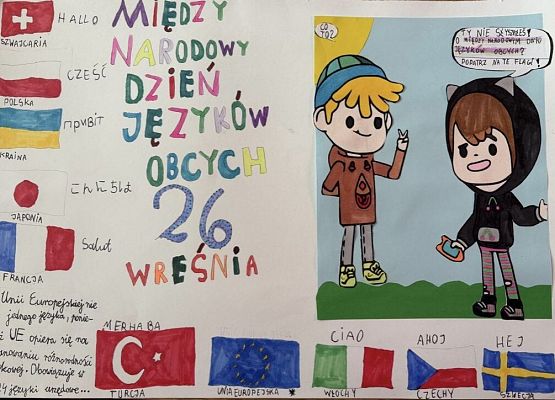 HALLO
SZWAJCARIA
CZEŚĆ
POLSKA
ПРИВІТ
KRAINA
こんにちは
JAPONIA
Salut
FRANCJA
MIĘDZY
NARODOWY
DZIEŃ
JĘZYKÓW
OBCYCH
26
WREŚNIA
CO
TO?
TY NIE SŁYSZAŁEŚ?
O MIĘDZYNARODOWYM DNIU
JĘZYKÓW OBCYCH?
POPATRZ NA TE FLAGI!
Unii Europejskiej nie
jednego języka, ponie-
UE opiera się na
różnorodności
Obowiązuje w
języki urzędowe...
MERHABA
TURCJA
UNIA EUROPEJSKA *
CIAO
WŁOCHY
AHOJ
CZECHY
HEJ
SZWECJA